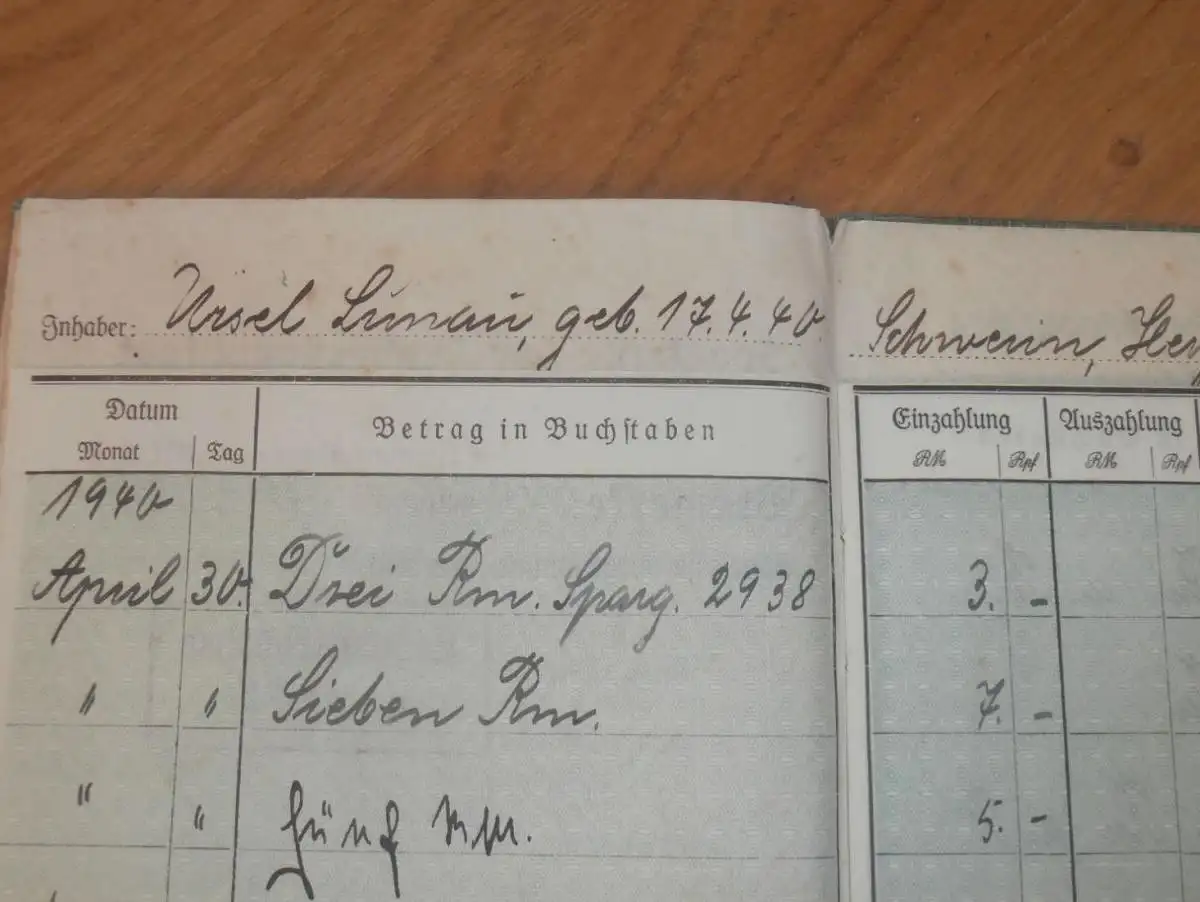 Inhaber: Ursel Lunau, geb. 17.4.40. Schwerin,
Datum Betrag in Buchstaben Einzahlung Auszahlung
Monat Tag RM Rpf RM Rpf
1940
April 30. Drei Rm. Sparg. 2938 3. -
" " Sieben Rm. 7. -
" " Fünf RM. 5. -